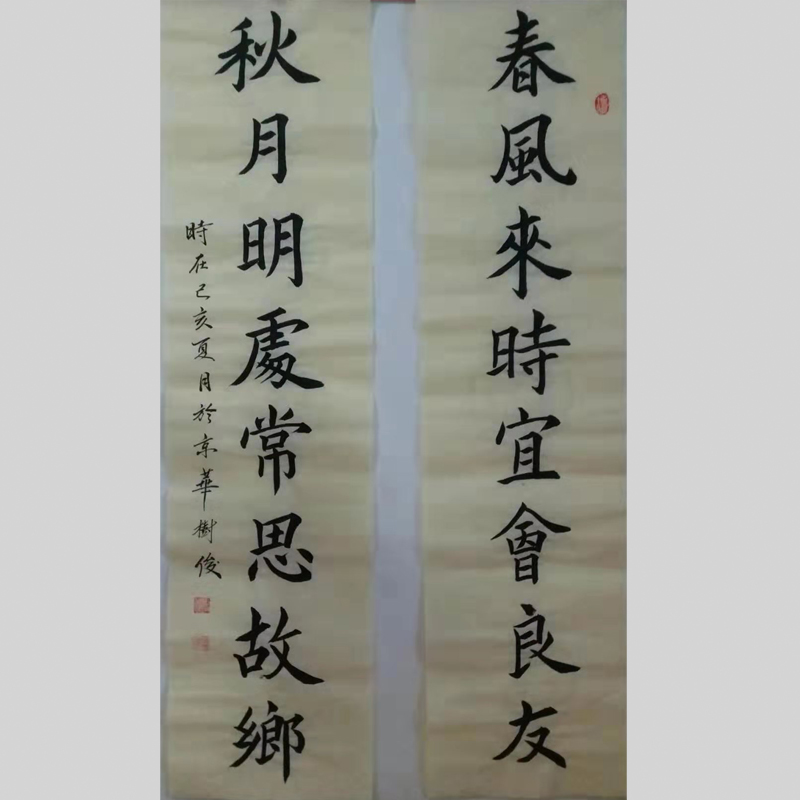 春風來時宜會良友
秋月明處常思故鄉
時在己亥夏月於京華樹俊